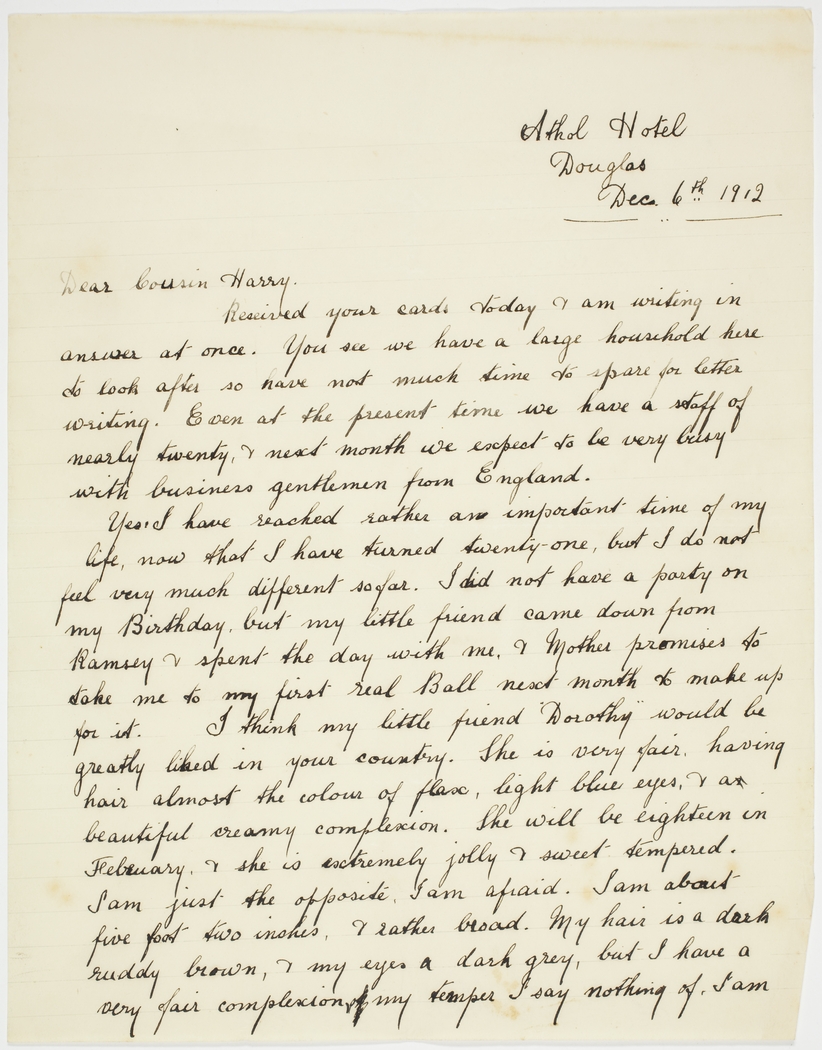 Athol Hotel
Douglas
Dec. 6th 1912
Dear Cousin Harry.
Received your cards today & am writing in
answer at once. You see we have a large household here
to look after so have not much time to spare for letter
writing. Even at the present time we have a staff of
nearly twenty, & next month we expect to be very busy
with business gentlemen from England.
Yes, I have reached rather an important time of my
life, now that I have turned twenty-one, but I do not
feel very much different so far. I did not have a party on
my Birthday, but my little friend came down from
Ramsey & spent the day with me, & Mother promises to
take me to my first real Ball next month to make up
for it. I think my little friend "Dorothy" would be
greatly liked in your country. She is very fair, having
hair almost the colour of flax, light blue eyes, & a
beautiful creamy complexion. She will be eighteen in
February, & she is extremely jolly & sweet tempered.
I am just the opposite, I am afraid. I am about
five foot two inches, & rather broad. My hair is a dark
ruddy brown, & my eyes a dark grey, but I have a
very fair complexion, my temper I say nothing of. I am